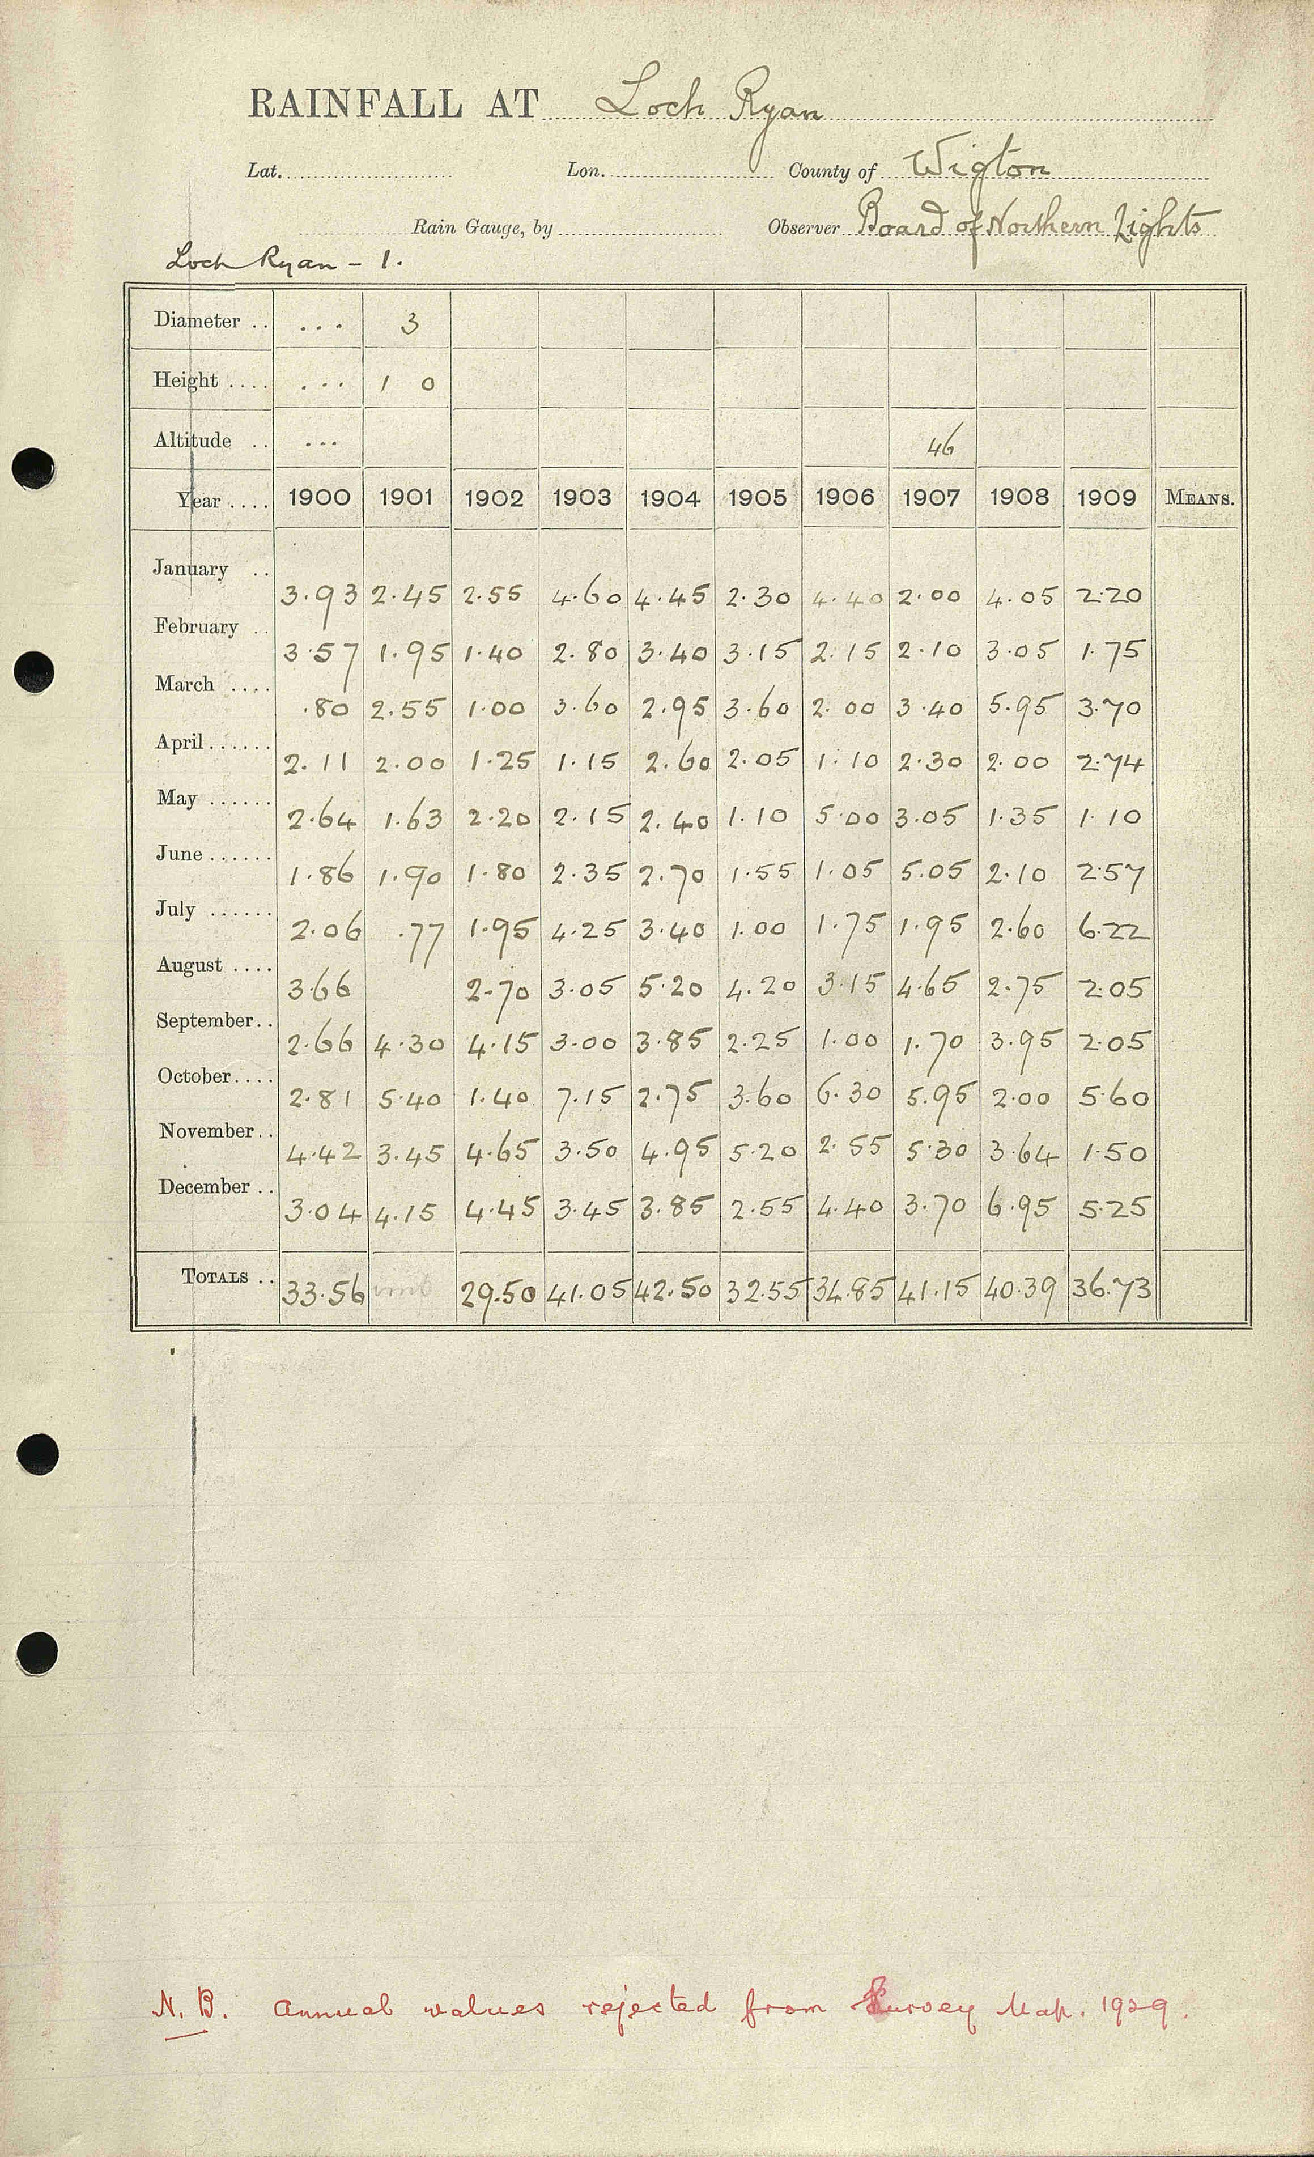 RAINFALL AT Loch Ryan
Lat. Lon. County of Wigton
Rain Gauge, by Observer Board of Northern Lights
Loch Ryan - 1.
Diameter .. ... 3
Height .... ... 1 0
Altitude .. ... 46
Year .... 1900 1901 1902 1903 1904 1905 1906 1907 1908 1909 MEANS.
January .. 3.93 2.45 2.55 4.60 4.45 2.30 4.40 2.00 4.05 2.20
February .. 3.57 1.95 1.40 2.80 3.40 3.15 2.15 2.10 3.05 1.75
March .... .80 2.55 1.00 3.60 2.95 3.60 2.00 3.40 5.95 3.70
April...... 2.11 2.00 1.25 1.15 2.60 2.05 1.10 2.30 2.00 2.74
May ...... 2.64 1.63 2.20 2.15 2.40 1.10 5.00 3.05 1.35 1.10
June ...... 1.86 1.90 1.80 2.35 2.70 1.55 1.05 5.05 2.10 2.57
July ...... 2.06 .77 1.95 4.25 3.40 1.00 1.75 1.95 2.60 6.22
August .... 3.66 2.70 3.05 5.20 4.20 3.15 4.65 2.75 2.05
September.. 2.66 4.30 4.15 3.00 3.85 2.25 1.00 1.70 3.95 2.05
October.... 2.81 5.40 1.40 7.15 2.75 3.60 6.30 5.95 2.00 5.60
November.. 4.42 3.45 4.65 3.50 4.95 5.20 2.55 5.30 3.64 1.50
December .. 3.04 4.15 4.45 3.45 3.85 2.55 4.40 3.70 6.95 5.25
TOTALS .. 33.56 29.50 41.05 42.50 32.55 34.85 41.15 40.39 36.73
N.B. Annual values rejected from Survey Map. 1929.